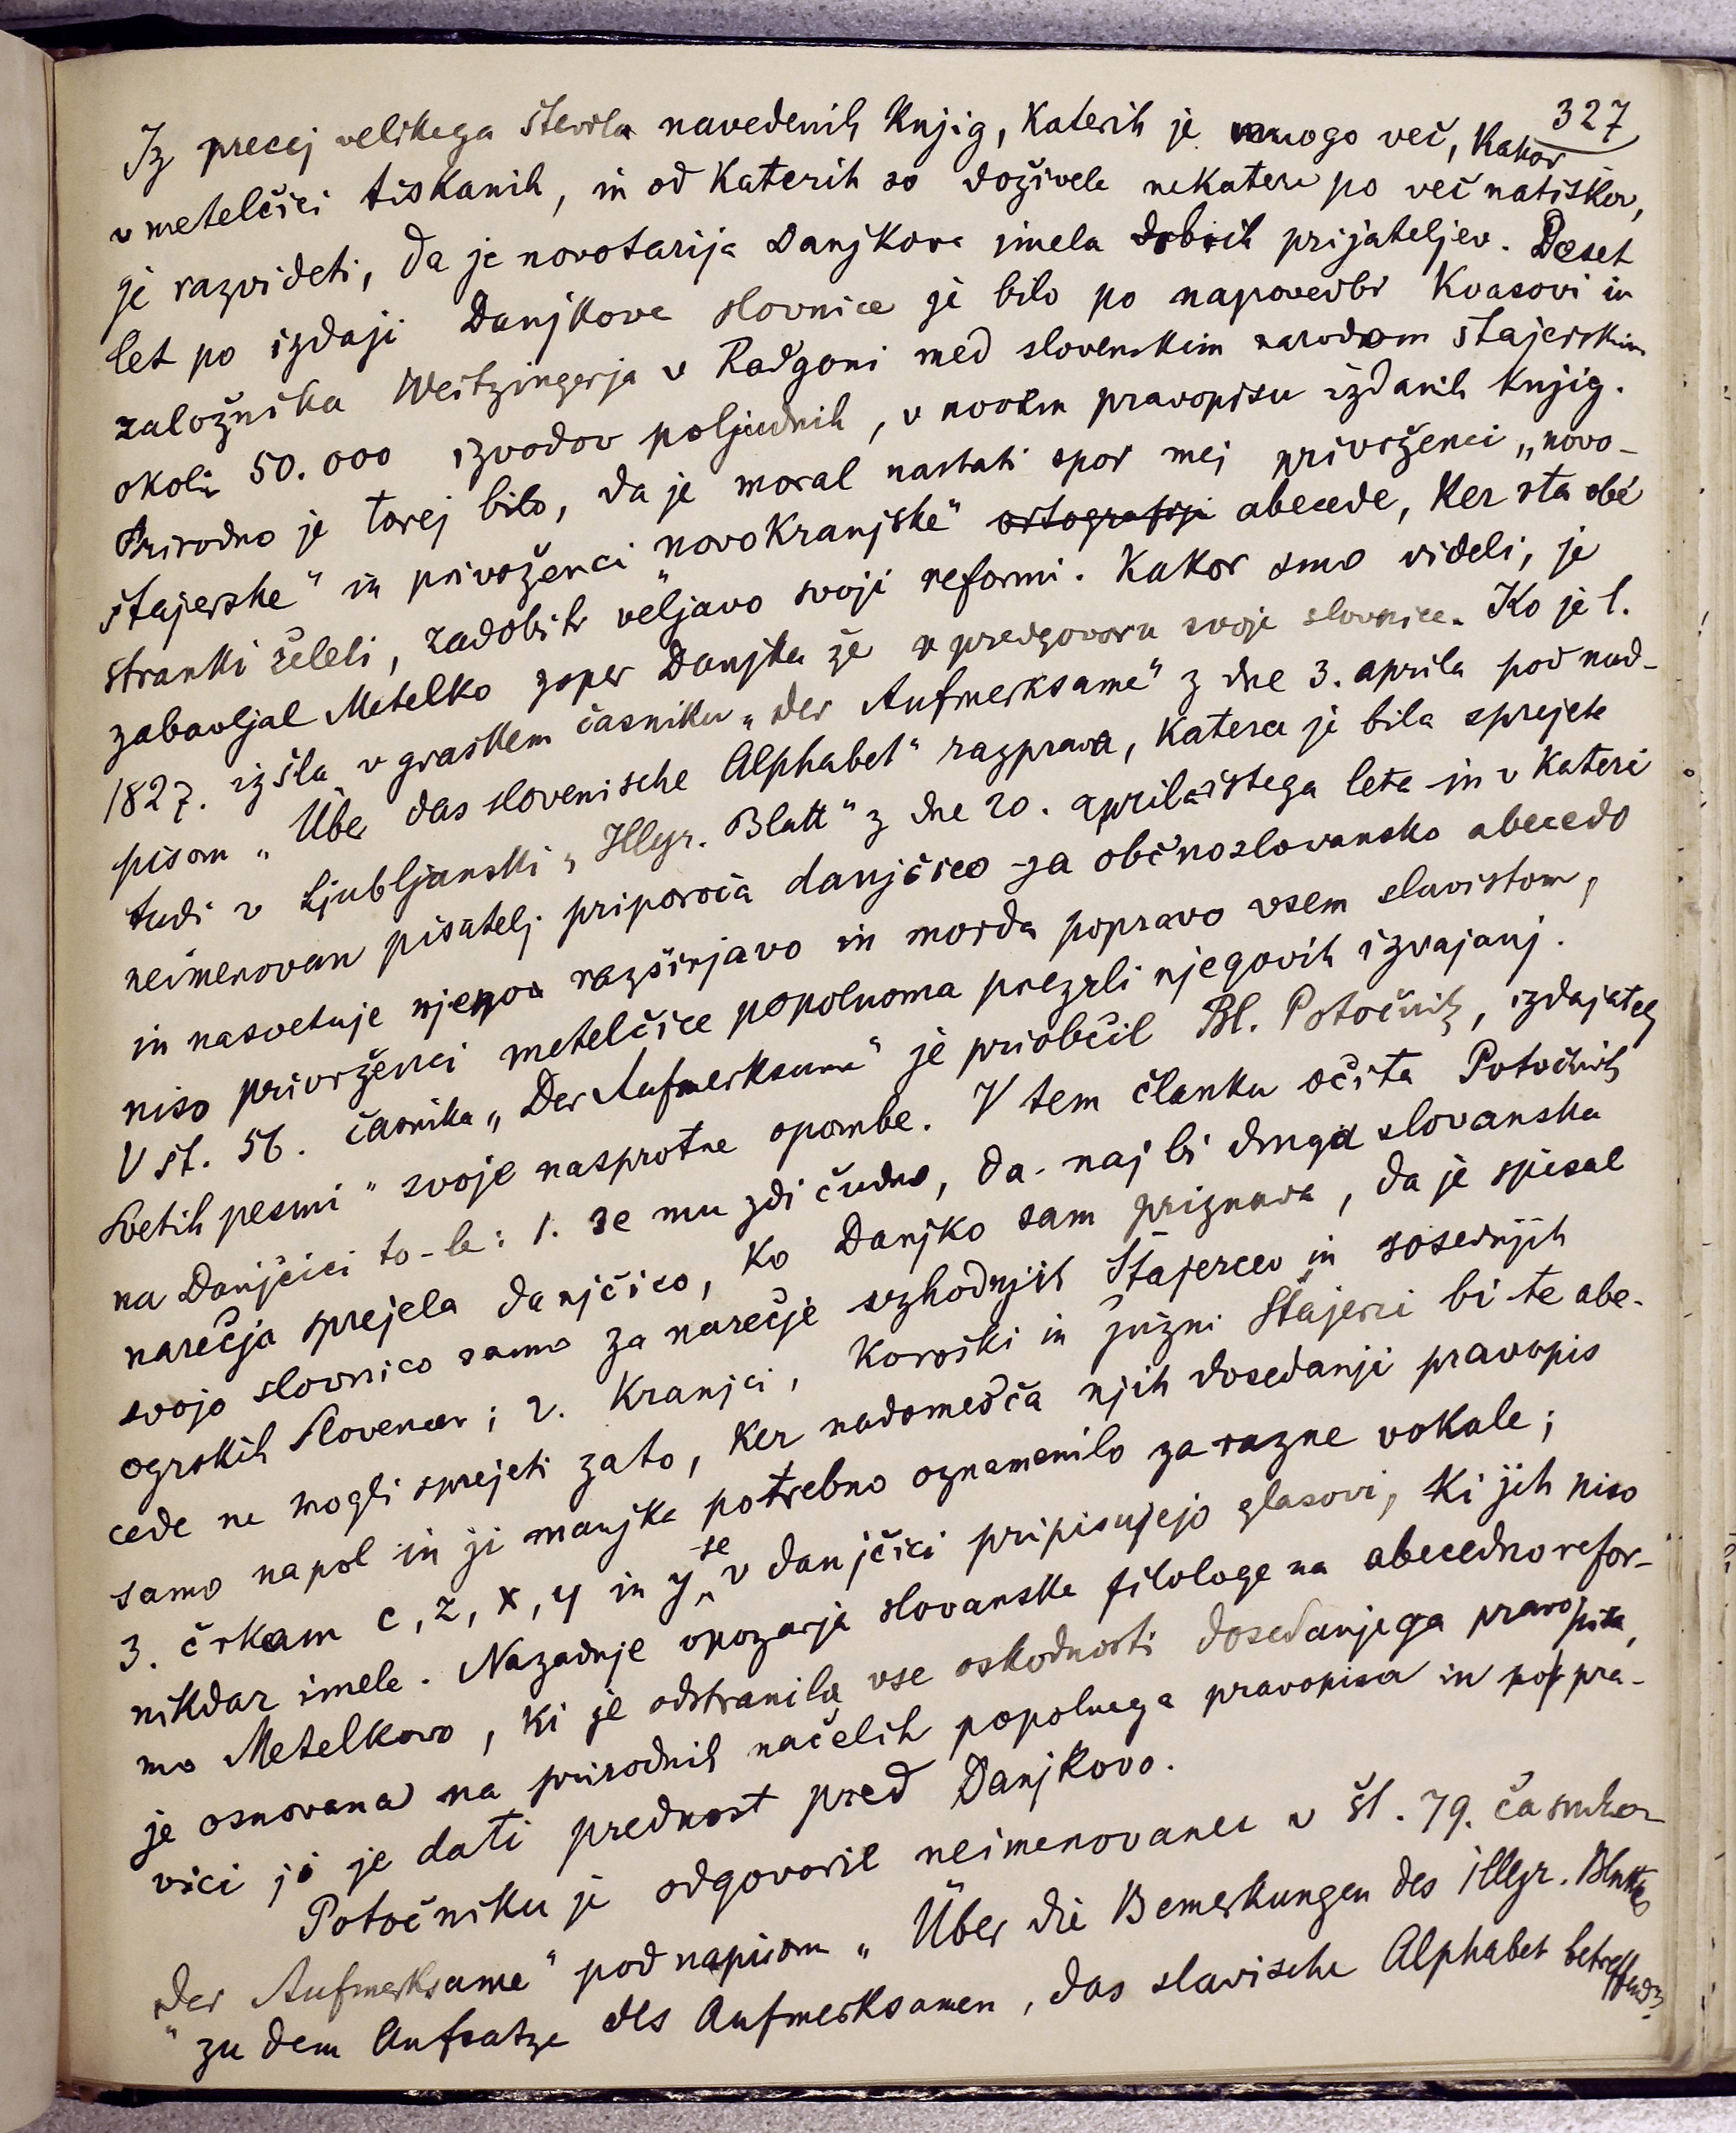 327
Iz precej velikega števila navedenih knjig, katerih je mnogo več, kakor
v metelčici tiskanih, in od katerih so doživele nekatere po več natiskov,
je razvideti, da je novotarija Danjkova imela dobrih prijateljev. Deset
let po izdaji Danjkove slovnice je bilo po napovedbi Kvasovi in
založnika Weitzingerja v Radgoni med slovenskim narodom štajerskim
okoli 50.000 izvodov poljudnih, v novem pravopisu izdanih knjig.
Prirodno je torej bilo, da je moral nastati spor mej privrženci „novo-
štajerske“ in privrženci „novokranjske“ ortografije abecede, ker sta obé
stranki želeli, zadobiti veljavo svoji reformi. Kakor smo videli, je
zabavljal Metelko zoper Danjka že v predgovoru svoje slovnice. Ko je l.
1827. izšla v graškem časniku „Der Aufmerksame“ z dne 3. aprila pod nad-
pisom „Über das slovenische Alphabet“ razprava, katera je bila sprejeta
tudi v Ljubljanski „Illyr. Blatt“ z dne 20. aprila istega leta in v kateri
neimenovan pisatelj priporoča danjčico za občnoslovansko abecedo
in nasvetuje njeno razširjavo in morda popravo vsem slavistom,
niso privrženci metelčice popolnoma prezrli njegovih izvajanj.
V št. 56. časnika „Der Aufmerksame“ je priobčil Bl. Potočnik, izdajatelj
„Svetih pesmi“ svoje nasprotne opombe. V tem članku očita Potočnik
na Danjčici to-le: 1. se mu zdi čudno, da naj bi druga slovanska
narečja sprejela danjčico, ko Danjko sam priznava, da je spisal
svojo slovnico samo za narečje vzhodnjih Štajercev in sosednjih
ogrskih Slovencev; 2. Kranjci, Koroški in južni Štajerci bi te abe-
cede ne mogli sprejeti zato, ker nadomešča njih dosedanji pravopis
samo napol in ji manjka potrebno oznamenilo za razne vokale;
3. črkam c, z, x, y in y se v danjčici pripisujejo glasovi, ki jih niso
nikdar imele. Nazadnje opozarja slovanske filologe na abecedno refor-
mo Metelkovo, ki je odstranila vse oskodnosti dosedanjega pravopisa,
je osnovana na prirodnih načelih popolnega pravopisa in po pra-
vici ji je dati prednost pred Danjkovo.
Potočniku je odgovoril neimenovanec v št. 79. časnika
„Der Aufmerksame“ pod napisom „Über die Bemerkungen des illyr. Blattes
zu dem Aufsatze des Aufmerksamen, das slavische Alphabet betreffend“.